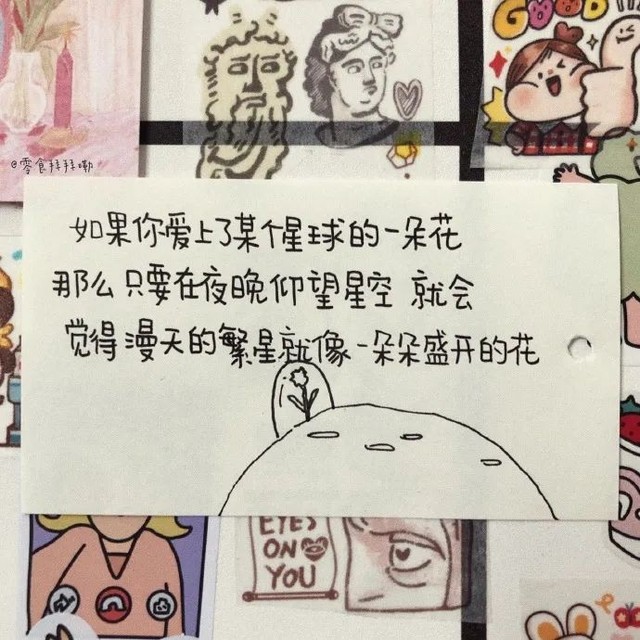 GOOD
@零食拜拜嘞
如果你爱上了某个星球的一朵花
那么只要在夜晚仰望星空 就会
觉得漫天的繁星就像一朵朵盛开的花
EYES
ON
YOU